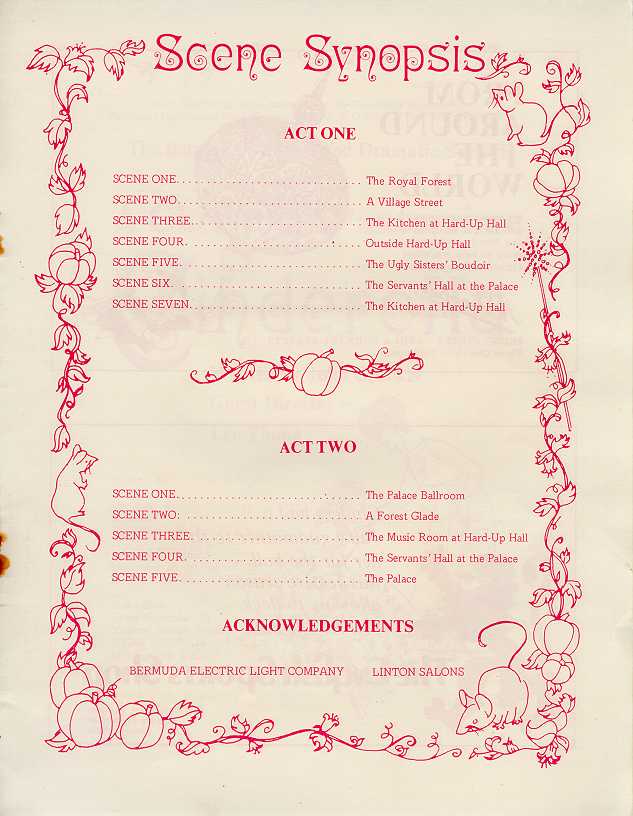 Scene Synopsis
ACT ONE
SCENE ONE. . . . . . . . . . . . . . . . . . . . . . . . . . . . The Royal Forest
SCENE TWO. . . . . . . . . . . . . . . . . . . . . . . . . . . . A Village Street
SCENE THREE. . . . . . . . . . . . . . . . . . . . . . . . . . The Kitchen at Hard-Up Hall
SCENE FOUR. . . . . . . . . . . . . . . . . . . . . . . . . . . Outside Hard-Up Hall
SCENE FIVE. . . . . . . . . . . . . . . . . . . . . . . . . . . . The Ugly Sisters' Boudoir
SCENE SIX. . . . . . . . . . . . . . . . . . . . . . . . . . . . . The Servants' Hall at the Palace
SCENE SEVEN. . . . . . . . . . . . . . . . . . . . . . . . . . The Kitchen at Hard-Up Hall
ACT TWO
SCENE ONE. . . . . . . . . . . . . . . . . . . . . . . . . . . . The Palace Ballroom
SCENE TWO: . . . . . . . . . . . . . . . . . . . . . . . . . . . A Forest Glade
SCENE THREE. . . . . . . . . . . . . . . . . . . . . . . . . . The Music Room at Hard-Up Hall
SCENE FOUR. . . . . . . . . . . . . . . . . . . . . . . . . . . The Servants' Hall at the Palace
SCENE FIVE. . . . . . . . . . . . . . . . . . . . . . . . . . . . The Palace
ACKNOWLEDGEMENTS
BERMUDA ELECTRIC LIGHT COMPANY LINTON SALONS